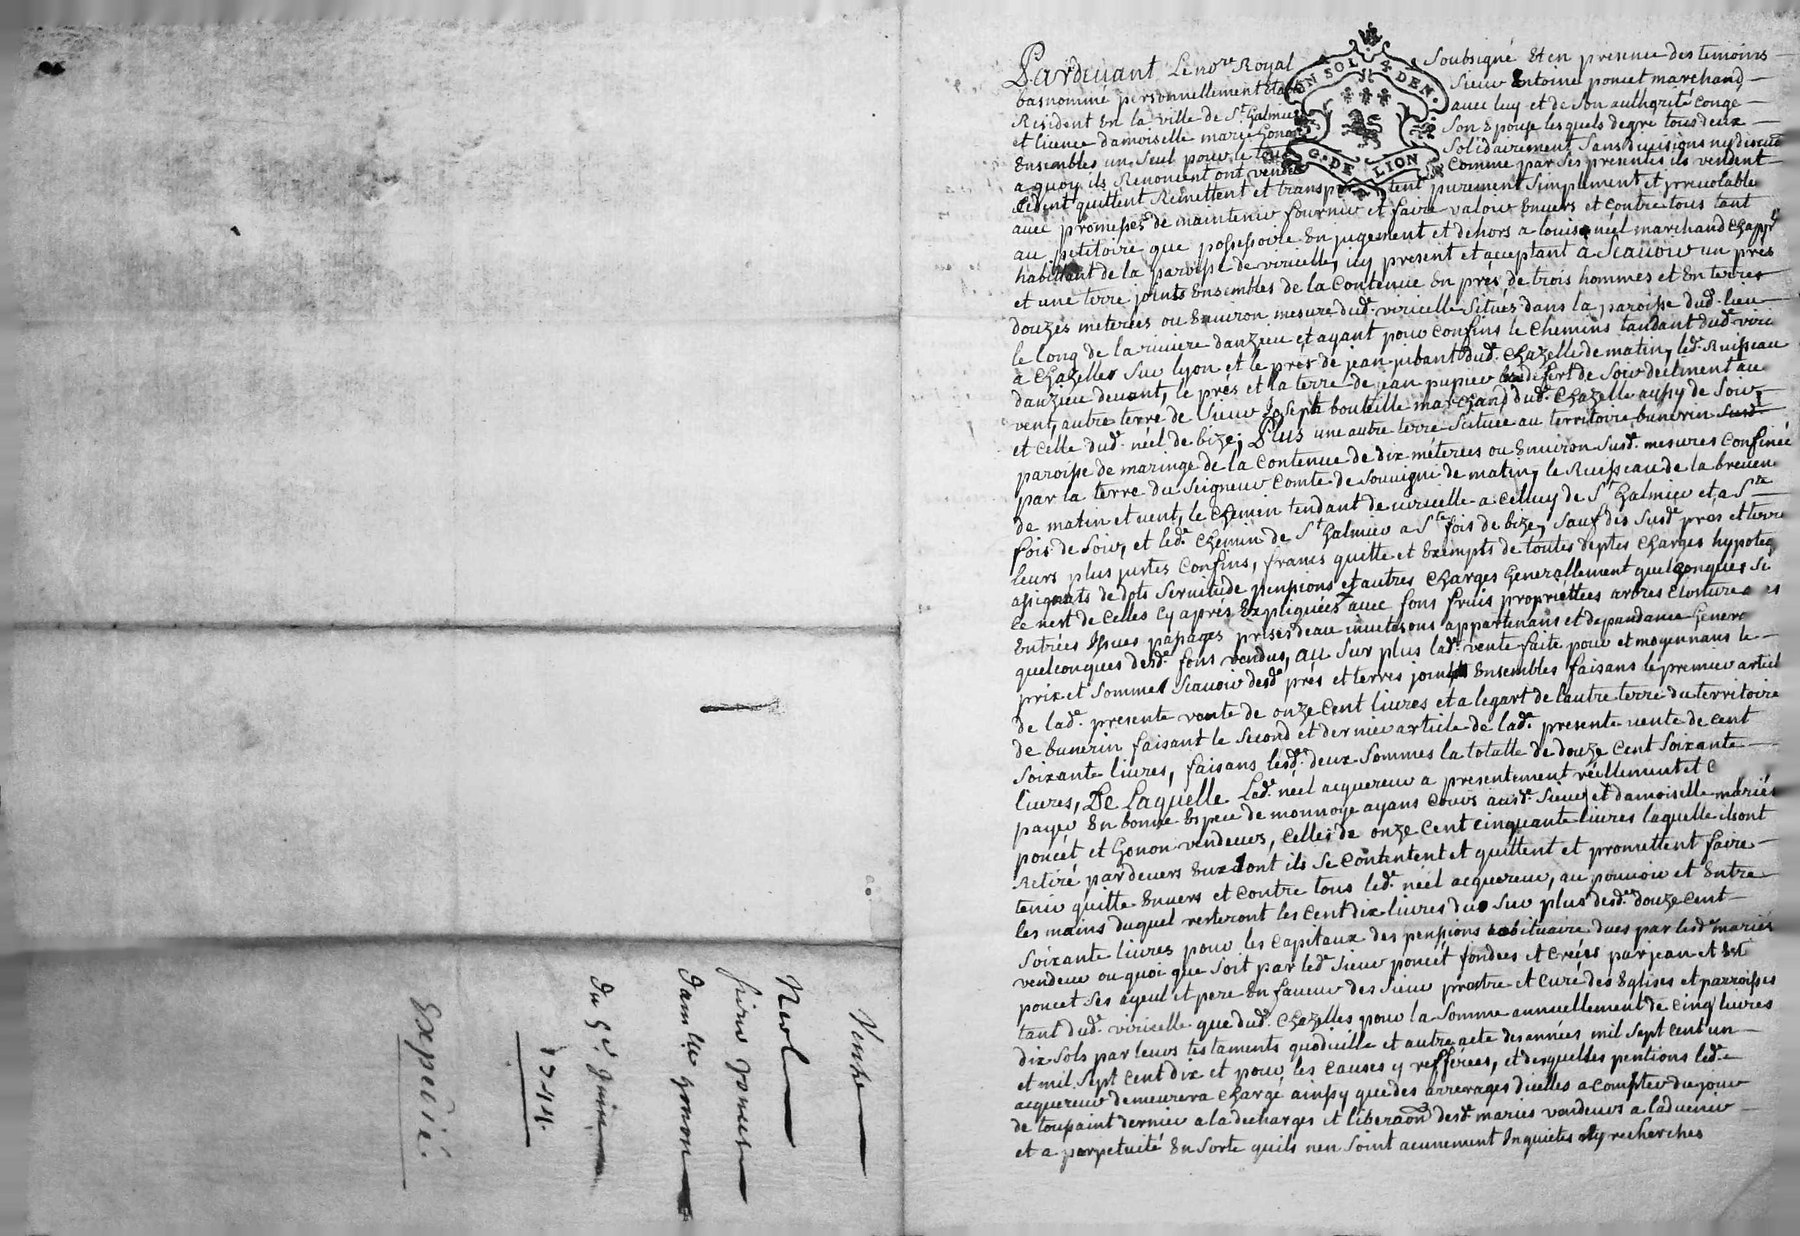 Vente
Neel
sieur poncet
dam.lle gonon
du 5e.
1744.
Expedié.
UN SOL 4 DEN.
G. DE LION
Pardevant Le no.re Royal Soubsigné et en presence des temoins
basnommé personnellement etably Sieur Entoine poncet marchand
Résident en la ville de S.t Galmier avec luy et de Son authorité conge
et licence damoiselle marie Gonon Son Epouse lesquels de gré tous deux
Ensembles un Seul pour le tout Solidairement Sans divisions ny discut
a quoy ils Renoncent ont vendu Comme par Ses presentes ils vendent
cedent quittent Remettent et transportent purement Simplement et jrrevolable
avec promesses de maintenir fournir et faire valoir Envers et Contre tous tant
au petitoire que possessoire En jugement et dehors a louis néél marchand chapp.r
habittant de la paroisse de viricelle, icy present et acceptant a Scauoir un prés
et une terre joints Ensembles de la Contenue En prés de trois hommes et En terres
douzes meterées ou Environ mesure dud. viricelle Situés dans la paroisse dud. lieu
le long de la riviere danzieu et ayant pour confins le Chemins tandant dud. viri
a Chazelles Sur lyon et le prés de jean jibant dud. Chazelle de matin, led. Ruisseau
danzieu devant, le prés et la terre de jean pupier de Soir declinent au
vent, autre terre de Sieur Joseph bouteille marchand dud. Chazelle aussy de Soir,
et Celle dud. neel de bize; Plus une autre terre Scituée au territoire bunerin
paroisse de maringe de la Contenue de dix méterées ou Environ Susd. mesures Confinée
par la terre du Seigneur Comte de Souvigni de matin, le Ruisseau de la breuen
de matin et vent, le chemin tendant de viricelle a Celluy de S.t Galmier et a S.te
fois de Soir, et led. Chemin de S.t Galmier a S.te fois de bize, Sauf des Susd. pres et terre
leurs plus justes Confins, francs quitte et Exempts de toutes deptes Charges hypoteq
assignats de dots Servitude penssions et autres Charges Generallement quelconques Si
Ce nest de Celles Cy aprés Expliquées avec fons fruis propriettees arbres Cloiture
Entrées Issues passages prises deau jnuetisons appartenans et dependance Gener
quelconques desd. fons vendus, au Sur plus lad. vente faite pour et moyennans le
prix et Sommes Scauoir desd. prés et terres joints Ensembles faisans le premier articl
de lad. presente vente de onze Cent livres et a legart de lautre terre du territoire
de bunerin faisant le Second et dernier article de lad. presente vente de cent
Soixante livres, faisans lesd. deux Sommes la totalle de douze Cent Soixante
livres, De Laquelle Lad. néél acquereur a presentement réellement et
payer En bonne Espece de monnoye ayans cours ausd. Sieur et damoiselle mariés
poncet et Gonon vendeurs, Celle de onze Cent cinquante livres laquelle ilsont
Retiré pardevers Eux dont ils Se Contentent et quittent et promettent faire
tenir quitte Envers et Contre tous led. néél acquereur, au pouvoir et Entre
les mains duquel resteront les Cent dix livres du Sur plus desd. douze Cent
Soixante livres pour les Capitaux des penssions dues par lesd. mariés
vendeur ou quoi que Soit par led. Sieur poncet fondées et Créés par jean et
poncet Ses ayeul et pere En faveur des Sieur pretre et Curé des Eglises et parroisses
tant dud. viricelle que dud. Chazelles pour la Somme annuellement de Cinq livres
dix Sols par leurs testaments quodicille et autre acte des années mil Sept Cent un
et mil Sept Cent dix et pour les Causes y refférées, et desquelles pentions led.
acquereur demeurera Chargé ainssy que des arrerages dicelles a Compter du jour
de toussaint dernier a la decharges et liberaôn desd. mariés vendeurs a ladvenir
et a perpetuité En Sorte quils nen Soint aucunement Inquietés ny recherches